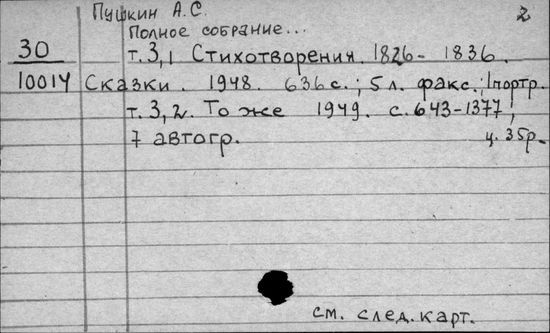 Пушкин А.С. 2
Полное собрание...
30 т. 3,1 Стихотворения. 1826- 1836.
10014 Сказки. 1948. 636с.; 5л. факс.; 1портр.
т. 3,2. То же 1949. с. 643-1377;
7 автогр. ц. 35р.
см. след. карт.